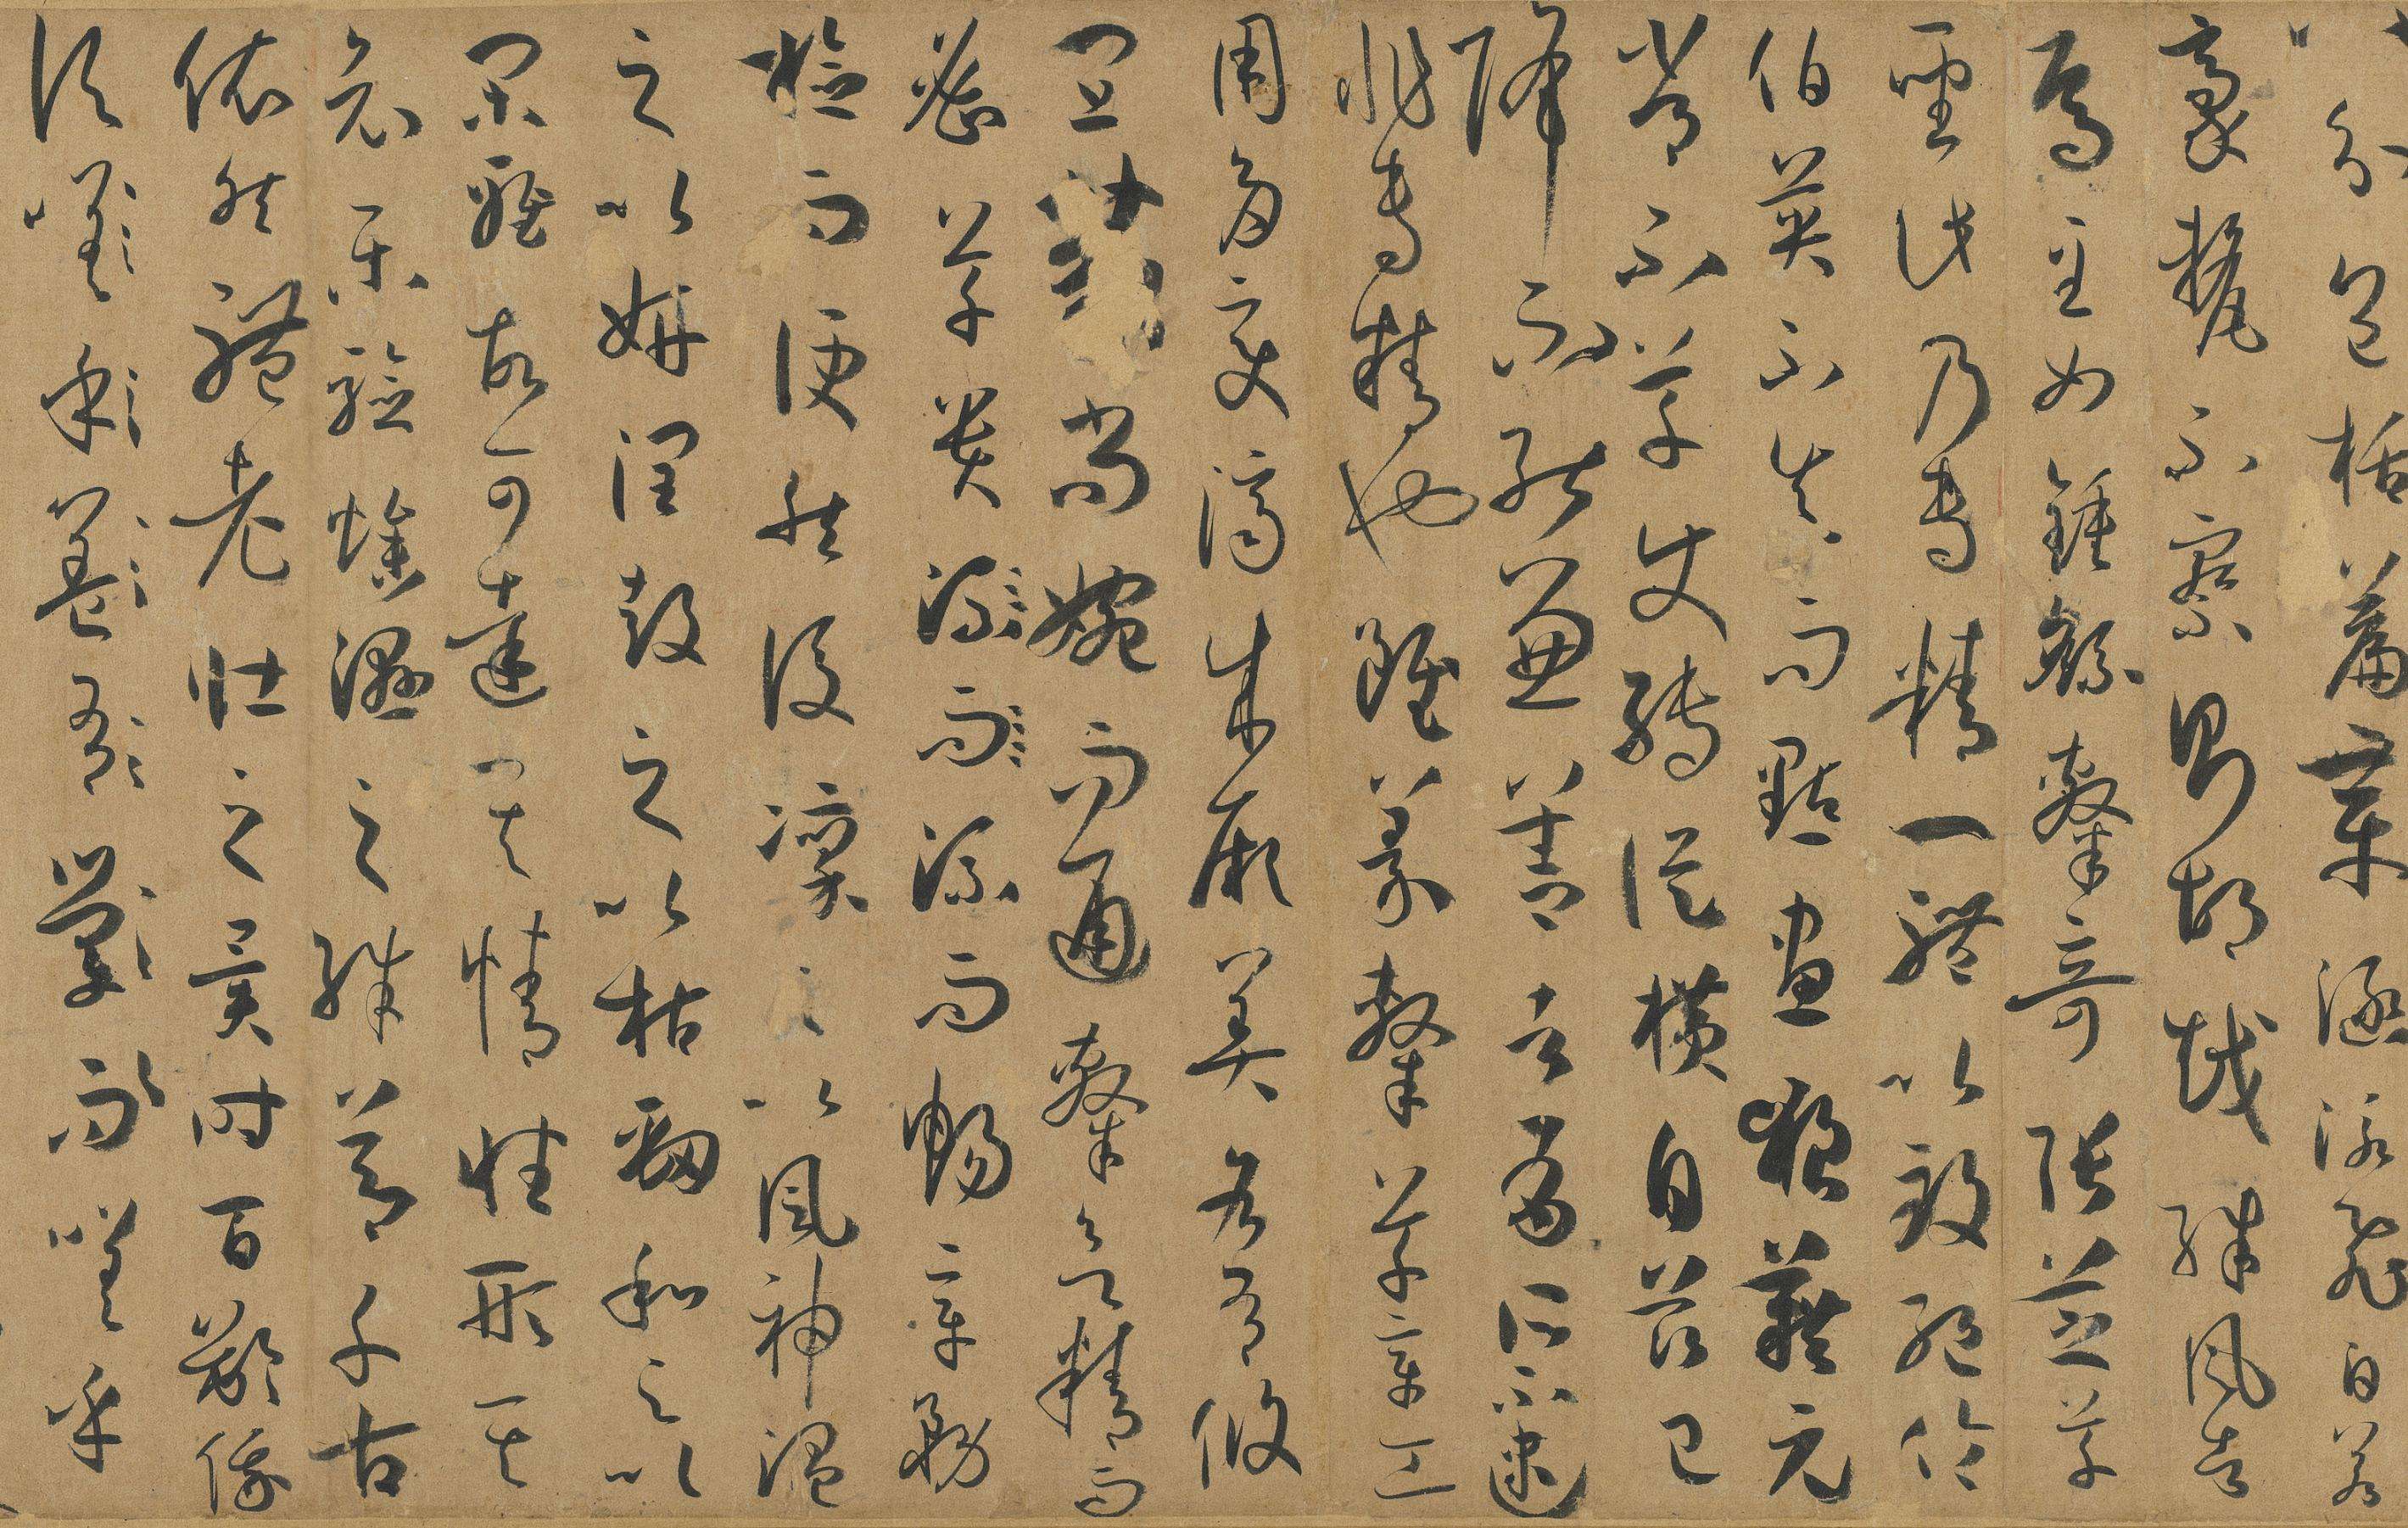 分包括篇章涵泳飛白若
豪釐不察則胡越殊風者
焉至如鍾繇隸奇張芝草
聖此乃專精一體以致絕倫
伯英不真而點畫狼藉元
常不草使轉縱橫自茲已
降不能兼善者有所不逮
非專精也雖篆隸草章工
用多變濟成厥美各有攸
宜篆尚婉而通隸欲精而
密草貴流而流而暢章務
檢而便然後凜之以風神溫
之以妍潤鼓之以枯勁和之以
閑雅故可達其情性形其
哀樂驗燥濕之殊節千古
依然體老壯之異時百齡俄
頃嗟乎蓋吾嗟乎